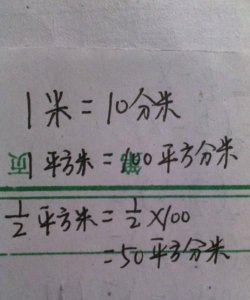 1米=10分米
1平方米=100平方分米
1/2平方米=1/2×100
=50平方分米